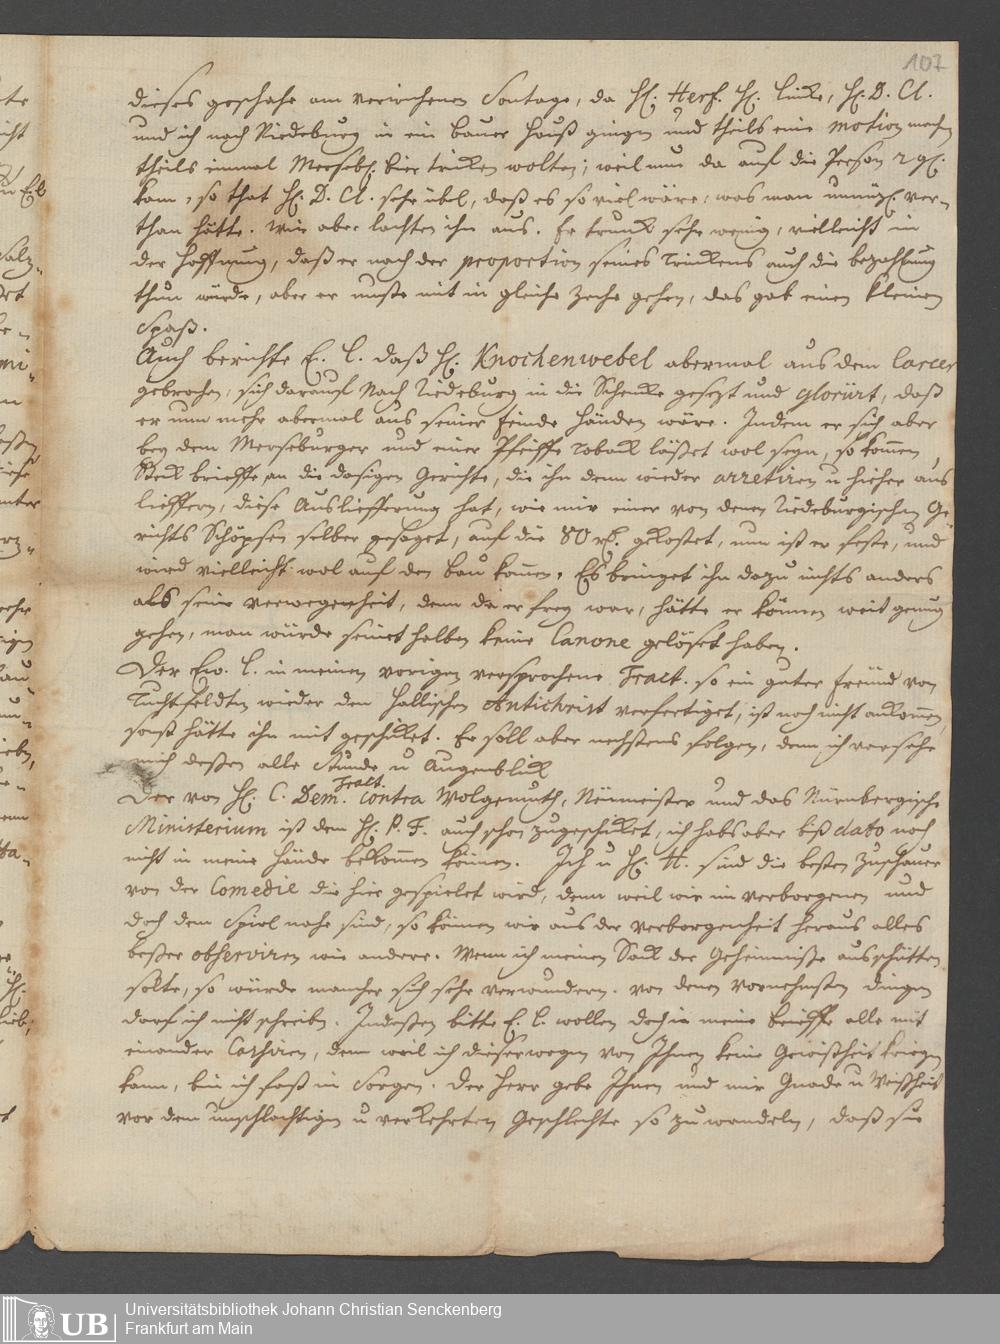 107
dieses geschahe am verwichenen Sontage, da H. Herf. H. Linke, H. D. Cl.
und ich nach Riedeburg in ein Bauer Hauß gingen und theils eine motion machen
theils einmal Merseb. Bier trinken wolten; weil nun da auf die Person 2 gl.
kam, so that H. D. Cl. sehr übel, daß es so viel wäre, was man unnüzl. ver-
than hätte. Wir aber lachten ihn aus. Er trunk sehr wenig, vielleicht in
der Hoffnung, daß er nach der proportion seines Trinkens auch die bezahlung
thun würde, aber er muste mit in gleiche Zeche gehen, das gab einen kleinen
Spaß.
Auch berichte E. L. daß H. Knochenwebel abermal aus dem Carcer
gebrochen, sich darauf nach Riedeburg in die Schenke gesezt und gloriirt, daß
er nun mehr abermal aus seiner Feinde Händen wäre. Indem er sich aber
bey dem Merseburger und einer Pfeiffe Toback läßet wol seyn, so kommen
Steck brieffe an die dasigen Gerichte, die ihn denn wieder arretiren u hieher aus
lieffern, diese Auslieferung hat, wie mir einer von denen Riedeburgischen Ge
richts Schöpsen selber gesaget, auf die 80 rl. gekostet, nun ist er feste, und
wird vielleicht wol auf den bau kommen. Es bringet ihn dazu nichts anders
als seine verwegenheit, denn da er frey war, hätte er können weit genug
gehen, man würde seinet halben keine Canone gelöset haben.
Der Ew. L. in meinen vorigen versprochene Tract. so ein guter Freund von
Tuchtfeldten wieder den Hallischen Antichrist verfertiget, ist noch nicht ankommen,
sonst hätte ihn mit geschicket. Er soll aber nechstens folgen, denn ich versehe
mich deßen alle Stunde u Augenblick
Der von H. C. Dem. Tract. contra Wolgemuth, Neumeister und das Nürnbergische
Ministerium ist dem H. P. F. auch schon zugeschicket, ich habs aber biß dato noch
nicht in meine Hände bekommen können. Ich u H. H. sind die besten Zuschauer
von der Comedie die hier gespielet wird, denn weil wir im verborgenen und
doch dem Spiel nahe sind, so können wir aus der verborgenheit heraus alles
beßer observiren wie andere. Wenn ich meinen Sack der Geheimniße ausschütten
solte, so würde mancher sich sehr verwundern. von denen vornehmsten dingen
darf ich nicht schreiben. Indeßen bitte E. L. wollen doch ia meine brieffe alle mit
einander Cassiren, denn weil ich dieserwegen von Ihnen keine Gewißheit kriegen
kann, bin ich fast in Sorgen. Der Herr gebe Ihnen und mir Gnade u Weißheit
vor dem unschlachtigen u verkehrten Geschlechte so zu wandeln, daß sie
UB
Universitätsbibliothek Johann Christian Senckenberg
Frankfurt am Main